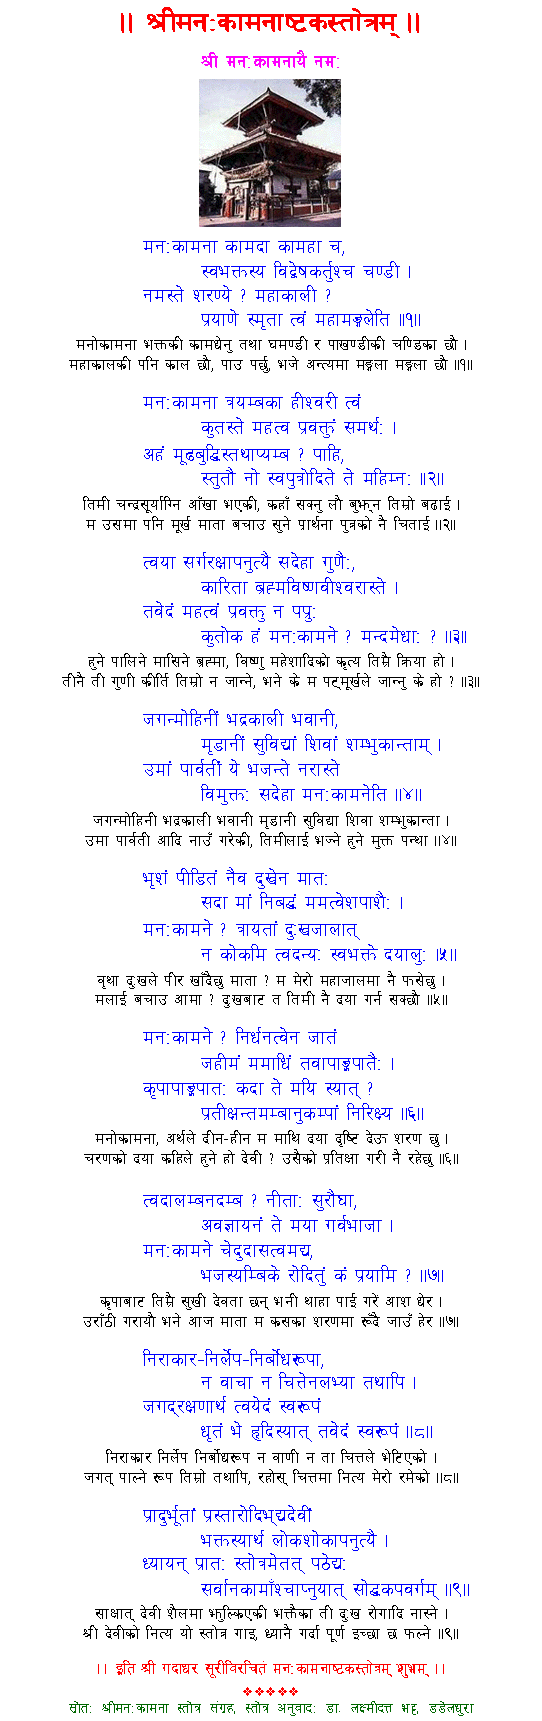 ।। श्रीमन:कामनाष्टकस्तोत्रम् ।।
श्री मन:कामनायै नम:
मन:कामना कामदा कामहा च,
स्वभक्तस्य विद्वेषकर्तुश्च चण्डी ।
नमस्ते शरण्ये ? महाकाली ?
प्रयाणे स्मृता त्वं महामङ्गलेति ॥१॥
मनोकामना भक्तकी कामधेनु तथा घमण्डी र पाखण्डीकी चण्डिका छौ ।
महाकालकी पनि काल छौ, पाउ पर्छु, भजे अन्त्यमा मङ्गला मङ्गला छौ ॥१॥
मन:कामना त्रयम्बका हीश्वरी त्वं
कुतस्ते महत्व प्रवक्तुं समर्थ: ।
अहं मूढबुद्धिस्तथाप्यम्ब ? पाहि,
स्तुतौ नो स्वपुत्रोदिते ते महिम्न: ॥२॥
तिमी चन्द्रसूर्याग्नि आँखा भएकी, कहाँ सक्नु लौ बुझ्न तिम्रो बढाई ।
म उसमा पनि मूर्ख माता बचाउ सुने प्रार्थना पुत्रको नै चिताई ॥२॥
त्वया सर्गरक्षापनुत्यै सदेहा गुणै:,
कारिता ब्रह्मविष्णवीश्वरास्ते ।
तवेदं महत्वं प्रवक्तु न पप्रु:
कुतोक हं मन:कामने ? मन्दमेधा: ? ॥३॥
हुने पालिने मासिने ब्रह्मा, विष्णु महेशादिको कृत्य तिम्रै क्रिया हो ।
तीनै ती गुणी कीर्ति तिम्रो न जान्ने, भने के म पट्मूर्खले जान्नु के हो ? ॥३॥
जगन्मोहिनीं भद्रकाली भवानी,
मृडानीं सुविद्यां शिवां शम्भुकान्ताम् ।
उमां पार्वतीं ये भजन्ते नरास्ते
विमुक्त: सदेहा मन:कामनेति ॥४॥
जगन्मोहिनी भद्रकाली भवानी मृडानी सुविद्या शिवा शम्भुकान्ता ।
उमा पार्वती आदि नाउँ गरेकी, तिमीलाई भज्ने हुने मुक्त पन्था ॥४॥
भृशं पीडितं नैव दुखेन मात:
सदा मां निबद्धं ममत्वेशपाशै: ।
मन:कामने ? त्रायतां दु:खजालात्
न कोकमि त्वदन्य: स्वभक्ते दयालु: ।५॥
वृथा दु:खले पीर खाँदैछु माता ? म मेरो महाजालमा नै फसेछु ।
मलाई बचाउ आमा ? दु:खबाट त तिमी नै दया गर्न सक्छौ ॥५॥
मन:कामने ? निर्धनत्वेन जातं
जहीमं ममाधिं तवापाङ्गपातै: ।
कृपापाङ्गपात: कदा ते मयि स्यात् ?
प्रतीक्षन्तमम्बानुकम्पां निरिक्ष्य ॥६॥
मनोकामना, अर्थले दीन-हीन म माथि दया दृष्टि देऊ शरण छु ।
चरणको दया कहिले हुने हो देवी ? उसैको प्रतिक्षा गरी नै रहेछु ॥६॥
त्वदालम्बनदम्ब ? नीता: सुरौघा,
अवज्ञायनं ते मया गर्वभाजा ।
मन:कामने चेदुदासत्वमद्य,
भजस्यम्बिके रोदितुं कं प्रयामि ? ॥७॥
कृपाबाट तिम्रै सुखी देवता छन् भनी थाहा पाई गरें आश धेर ।
उराँठी गरायौ भने आज माता म कसका शरणमा रूँदै जाउँ हेर ॥७॥
निराकार-निर्लेप-निर्बोधरूपा,
न वाचा न चित्तेनलभ्या तथापि ।
जगद्रक्षणार्थ त्वयेदं स्वरूपं
धृतं भे हृदिस्यात् तवेदं स्वरूपं ॥८॥
निराकार निर्लेप निर्बोधरूप न वाणी न ता चित्तले भेटिएको ।
जगत् पाल्ने रूप तिम्रो तथापि, रहोस् चित्तमा नित्य मेरो रमेको ॥८॥
प्रादुर्भूतां प्रस्तारोदिभ्द्यदेवीं
भक्तस्यार्थ लोकशोकापनुत्यै ।
ध्यायन् प्रात: स्तोत्रमेतत् पठेद्य:
सर्वानकामाँश्चाप्नुयात् सोद्धकपवर्गम् ॥९॥
साक्षात् देवी शैलमा झुल्किएकी भक्तैका ती दु:ख रोगादि नास्ने ।
श्री देवीको नित्य यो स्तोत्र गाइ, ध्यानै गर्दा पूर्ण इच्छा छ फल्ने ॥९॥
।। इति श्री गदाधर सूरीविरचितं मन:कामनाष्टकस्तोत्रम् शुभम् ।।
❖❖❖❖❖
स्रोत: श्रीमन:कामना स्तोत्र संग्रह, स्तोत्र अनुवाद: डा. लक्ष्मीदत्त भट्ट, डडेलधुरा